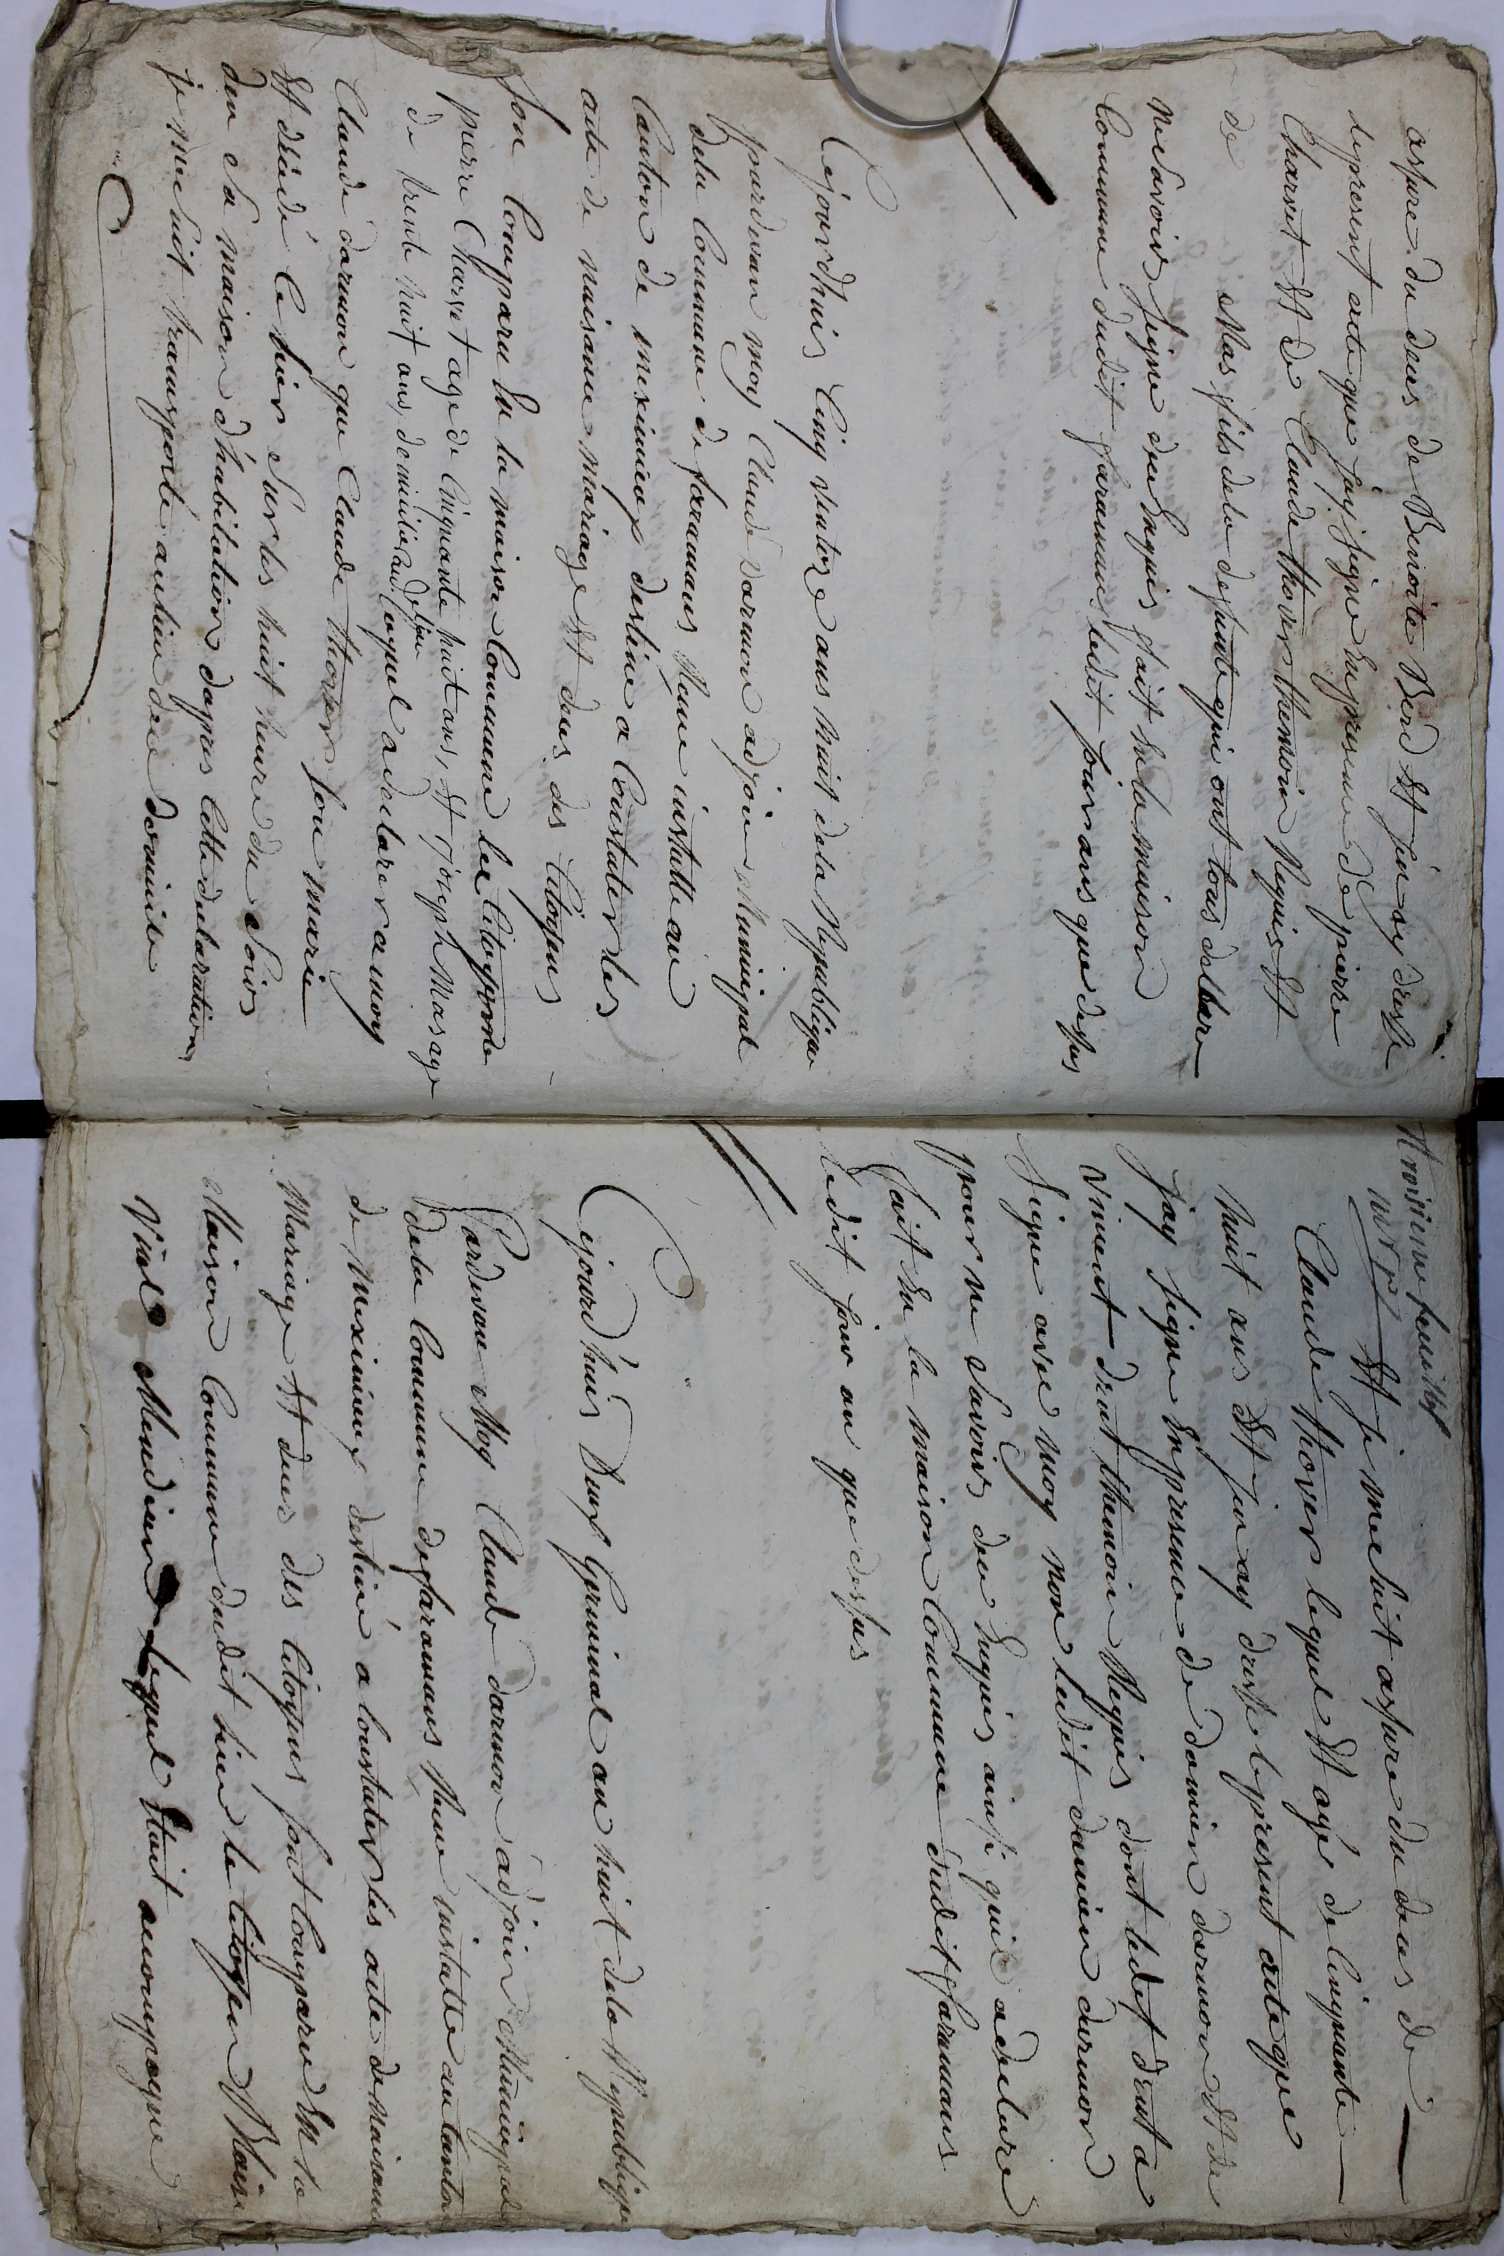 assure du deces de Benoite Berd Et jen ay dressé
le present acte que jay signé En presence de pierre
Charvet Et de Claude thover themoin Requis Et
de Mas fils de la defunte qui ont tous declare
ne savoir signe de ce Enquis fait En la maison
Commune dudit faramans ledit jour ans que dessus
Cejourdhuis Cinq ventoze ans huit de la Republique
pardevan moy Claude darmon adjoin Municipal
de la Commune de faramans Neme installe au
Canton de meximieux destine a Constater les
acte de naisance mariage Et deces des Citoyens
son Comparu En la maison Commune les Citoyens
pierre Charvet age de Cinquante huit ans, Et joseph Mas age
de trente huit ans, domicilie audit lieu
lequel a declarer a moy
Claude darmon que Claude thover son mari
Et décédé le hier sur les huit heure du Soir
den sa maison dhabitation dapres Cette declaration
je me suit transporte au lieu de ce domicile
troisieme feuillet
Et je me suit assure du deces de
Claude thover lequel Et agé de Cinquante
huit ans Et jen ay dressé le present acte que
jay signe En presence de damien darmon Et de
vincent drut themoin Requis dont ledit drut a
signe avec moy non ledit damien darmon
pour ne Savoir de ce Enquis ainsi quil a declare
fait En la maison Commune dudit faramans
ledit jour an que dessus
Cejourdhuis Deux Germinal an huit de la Republique
Pardevan Moy Claude darmon adjoin Municipal
de la Commune de faramans Neme installe au Canton
de Meximieux destiné a Constater les acte de Naisance
Mariage Et deces des Citoyens sont Comparu En la
Maison Commune dudit lieu le Citoyen Blaise
Vial lequel Etait accompagné